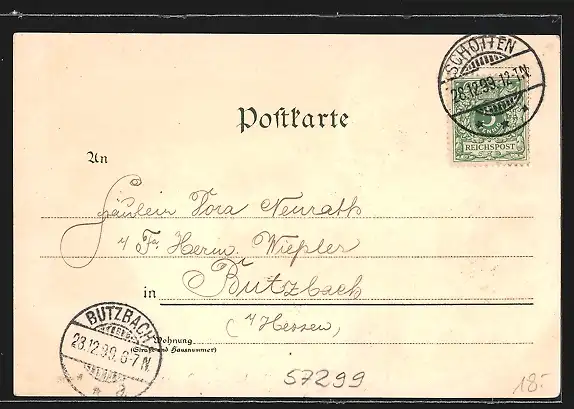 SCHOTTEN
28.12.99.12-1N.
5
REICHSPOST
Postkarte
An
Fräulein Dora Neurath
Fa. Herm
Butzbach
in
Hessen
Wohnung
(Straße und Hausnummer)
BUTZBACH
28.12.99.6-7N.
57299
18.-